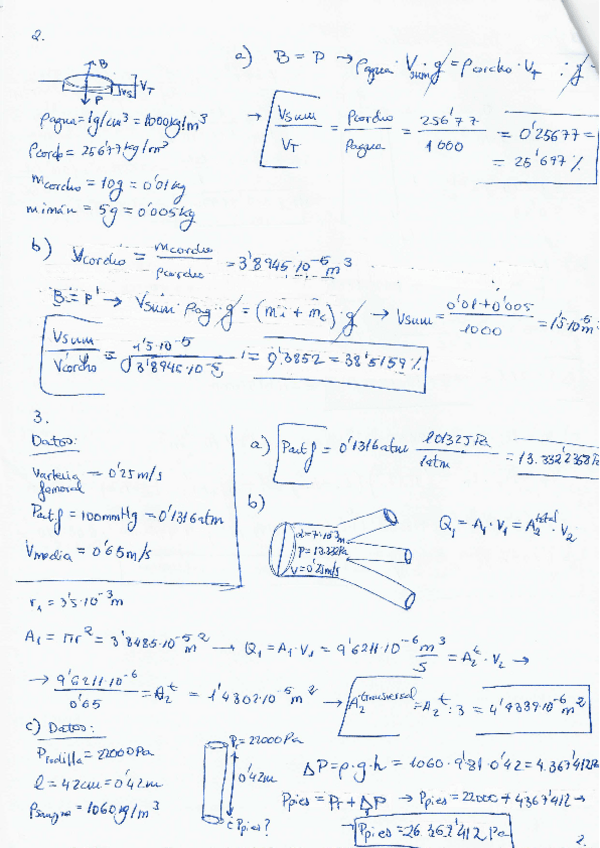 2.
a) B = P → ρagua · Vsum · g = ρcorcho · VT · g
B
VT
VS
P
ρagua = 1g/cm³ = 1000kg/m³
ρcorcho = 256'77kg/m³
mcorcho = 10g = 0'01kg
mimán = 5g = 0'005kg
→ Vsum/VT = ρcorcho/ρagua = 256'77/1000 = 0'25677 =
= 25'697%
b) Vcorcho = mcorcho/ρcorcho = 3'8945·10⁻⁵m³
B = P' → Vsum · ρag · g = (mi + mc) · g → Vsum = 0'01+0'005/1000 = 1'5·10⁻⁵m³
Vsum/Vcorcho = 1'5·10⁻⁵/3'8946·10⁻⁵ = 0'3852 = 38'5159%
3.
Datos:
Varteria femoral = 0'25m/s
Part f = 100mmHg = 0'1316atm
Vmedia = 0'65m/s
a) Part f = 0'1316atm 101325Pa/1atm = 13.332'2368Pa
b)
d=7·10⁻³m
P=13.332Pa
V=0'25m/s
Q₁ = A₁·V₁ = A₂total · V₂
r₁ = 3'5·10⁻³m
A₁ = πr² = 3'8485·10⁻⁵m² → Q₁ = A₁·V₁ = 9'6211·10⁻⁶ m³/s = A₂t · V₂ →
→ 9'6211·10⁻⁶/0'65 = A₂t = 1'4802·10⁻⁵m² → A₂transversal = A₂t : 3 = 4'9339·10⁻⁶m²
c) Datos:
Prodilla = 22000Pa
l = 42cm = 0'42m
ρsangre = 1060kg/m³
Pr = 22000Pa
0'42m
¿Ppies?
ΔP = ρ·g·h = 1060·9'81·0'42 = 4.367'412Pa
Ppies = Pr + ΔP → Ppies = 22000 + 4367'412 →
→ Ppies = 26.367'412 Pa
2.